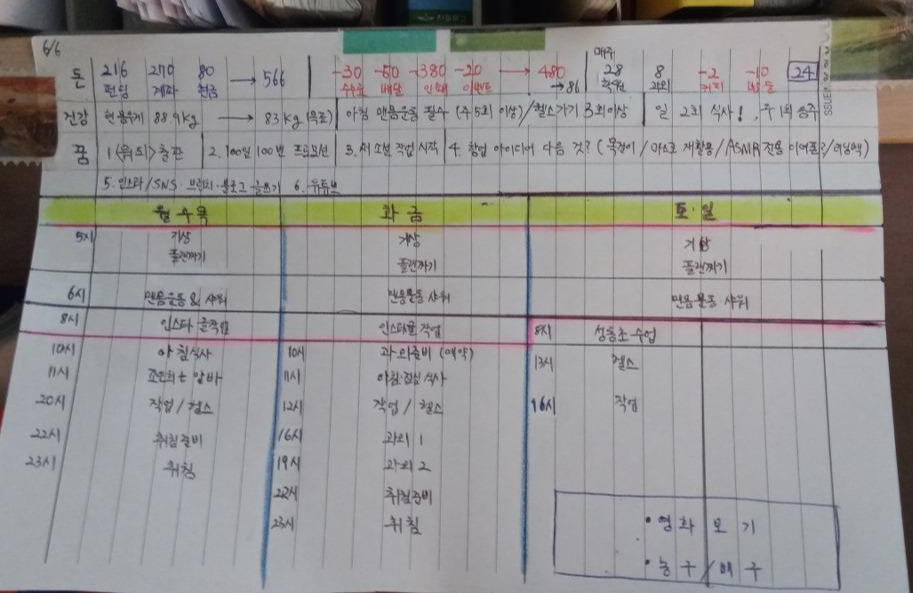 6/6
돈 216 270 80 → 566 -30 -50 -380 -20 → 480 매주 28 8 -2 -10 24
펀딩 계좌 현금 수수료 배달 인쇄 이벤트 → 86 학원 과외 커피
건강 현 몸무게 88.9kg → 83kg (목표) 아침 맨몸운동 필수 (주 5회 이상) / 헬스가기 3회이상 일 2회 식사!, 주 1회 음주
꿈 1. 출판 2. 100일 100번 프로모션 3. 새 소설 작업 시작 4. 창업 아이디어 다음 것? ( 목걸이 / 마스크 재활용 / ASMR 전용
5. 인스타/SNS·브런치·블로그 글쓰기 6. 유튜브
월 수 목 화 금 토·일
5시 기상 기상 기상
플랜짜기 플랜짜기 플랜짜기
6시 맨몸운동 & 샤워 맨몸운동 샤워 맨몸운동·샤워
8시 인스타 글작업 인스타글 작업 8시 성동초 수업
10시 아침식사 10시 과외준비 (예약) 13시 헬스
11시 알바 11시 아침·점심 식사
20시 작업 / 헬스 12시 작업 / 헬스 16시 작업
22시 취침준비 16시 과외 1
23시 취침 19시 과외 2
22시 취침준비
23시 취침
• 영화 보기
• 농구 / 배구